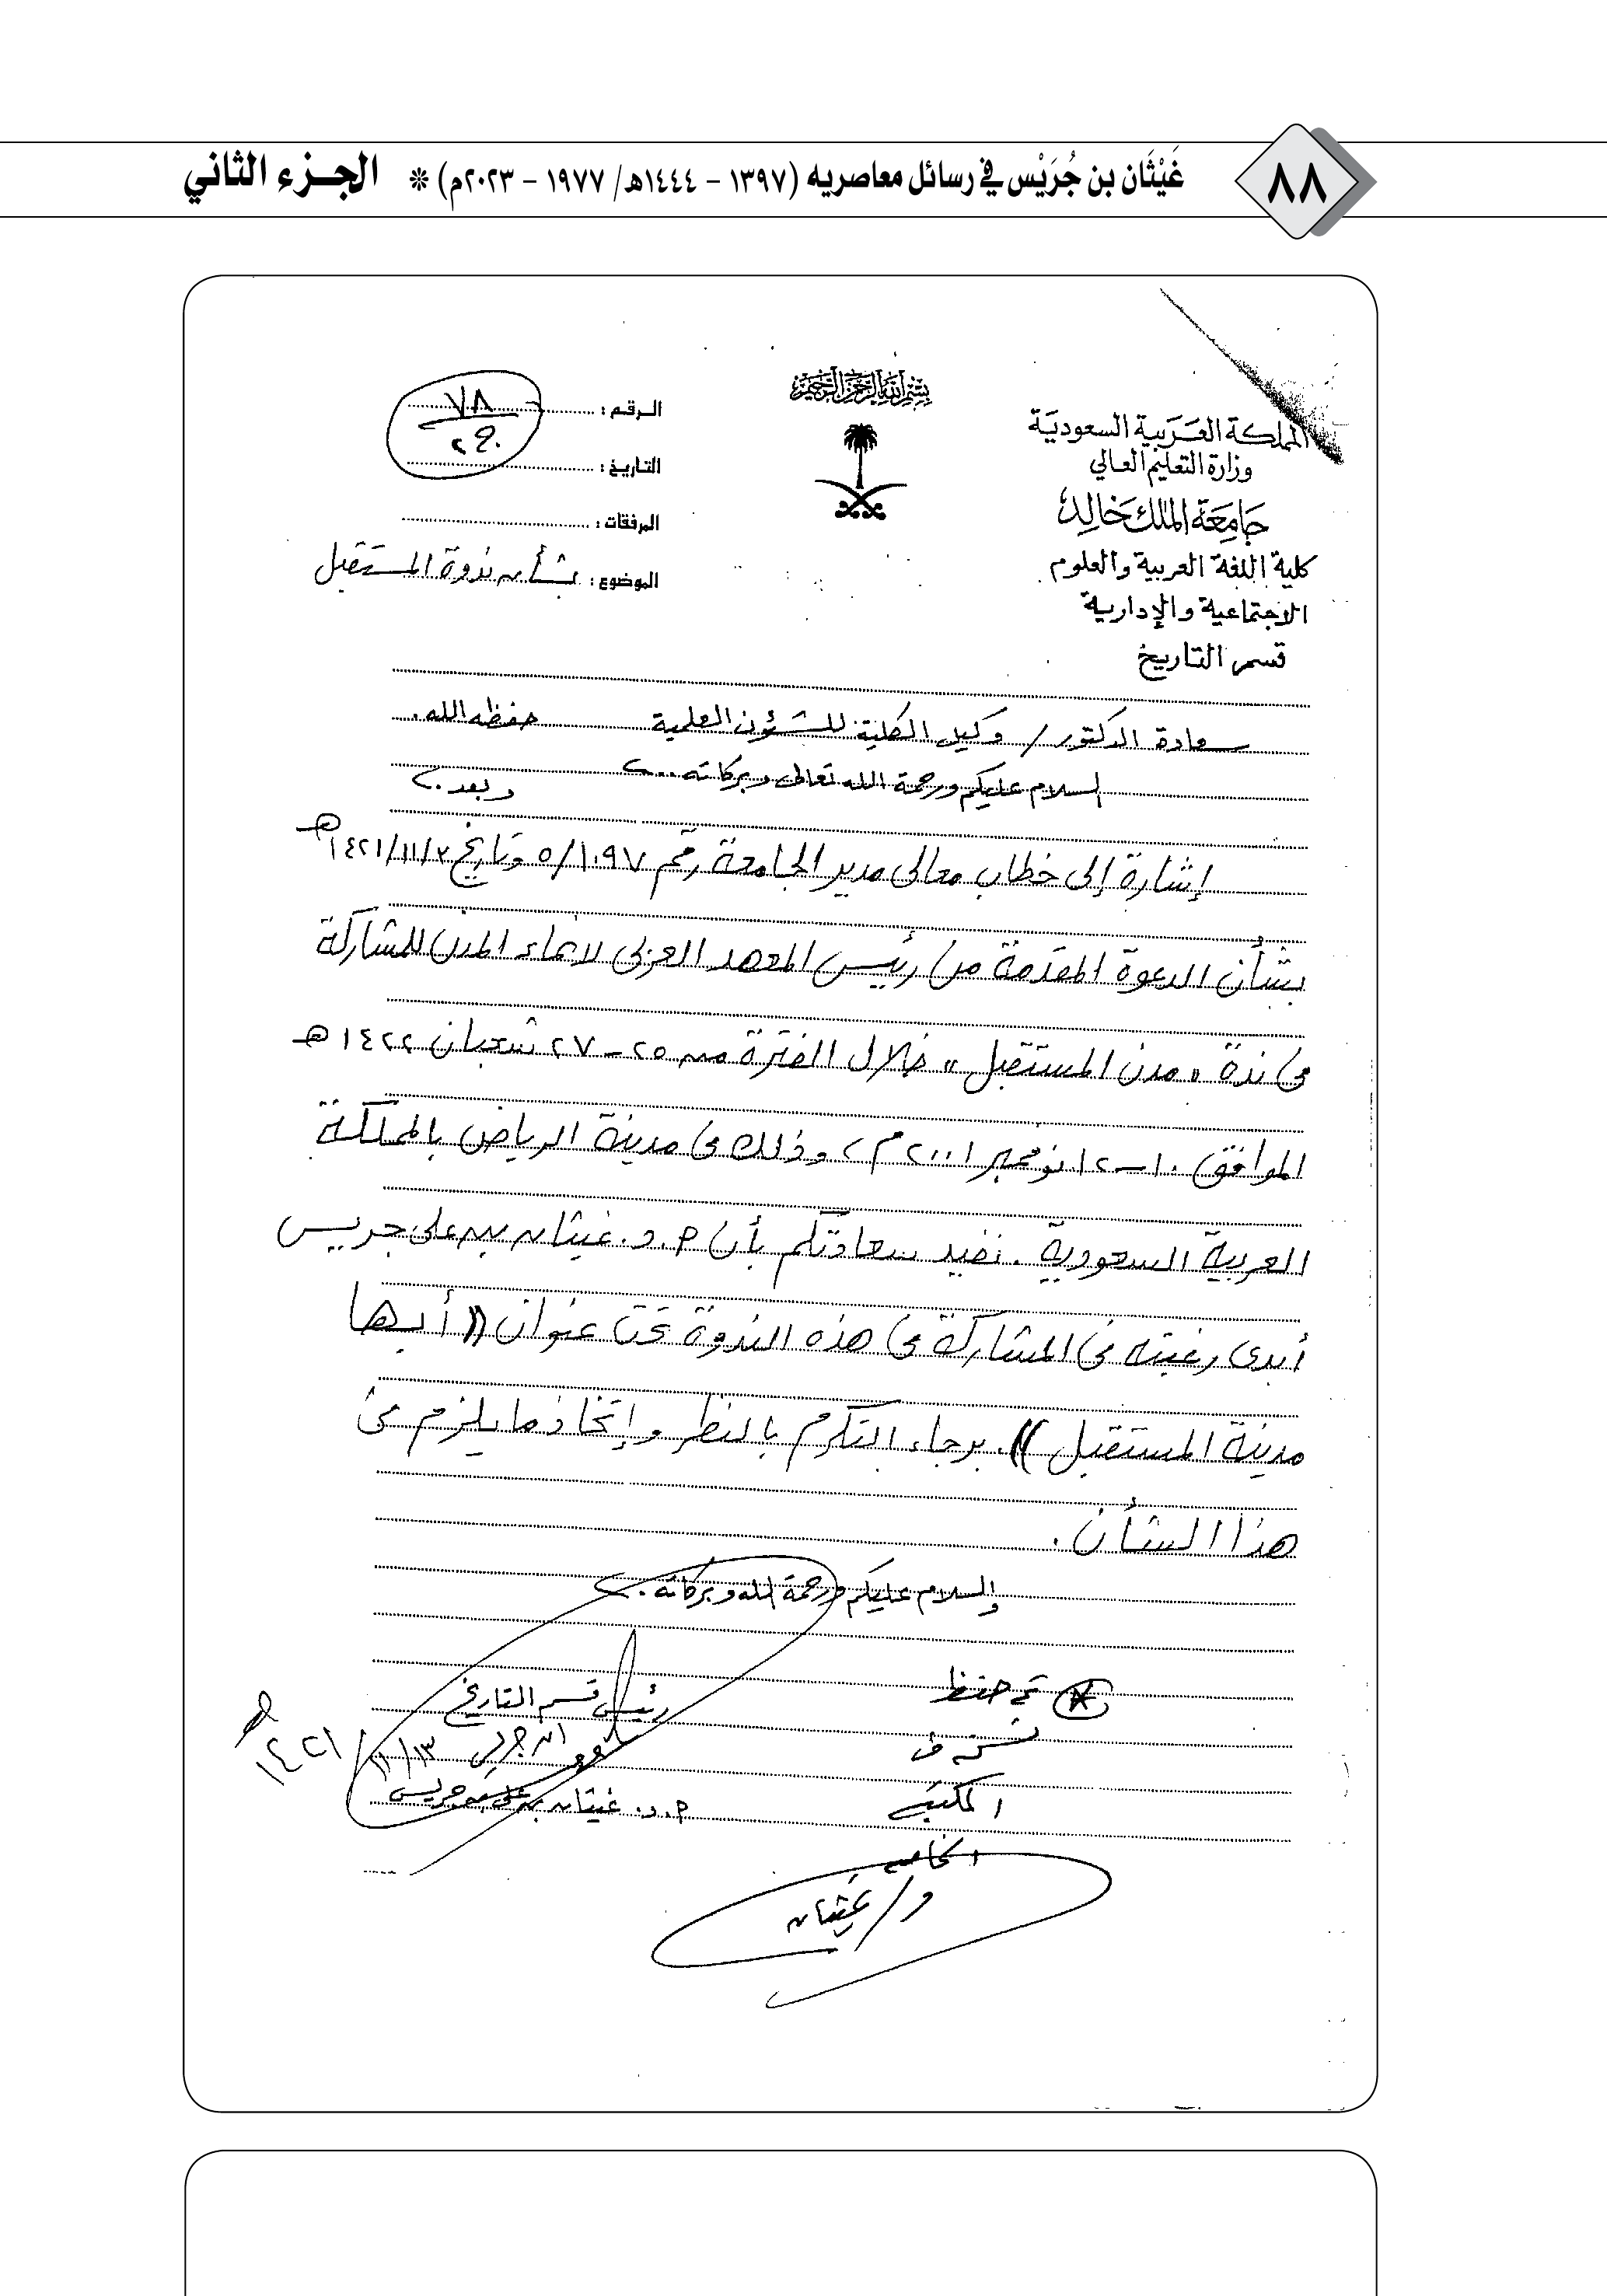 ٨٨
غَيْثَان بن جُرَيْس في رسائل معاصريه (١٣٩٧ - ١٤٤٤هـ/ ١٩٧٧ - ٢٠٢٣م) * الجـزء الثاني
بسم الله الرحمن الرحيم
المملكة العربية السعودية
وزارة التعليم العالي
جامعة الملك خالد
كلية اللغة العربية والعلوم
الاجتماعية والإدارية
قسم التاريخ
الرقم : ٧٨
التاريخ :
المرفقات :
الموضوع : بشأن ندوة المستقبل
سعادة الدكتور / وكيل الكلية للشؤون العلمية حفظه الله.
السلام عليكم ورحمة الله تعالى وبركاته..
وبعد.
إشارة إلى خطاب معالي مدير الجامعة رقم ٥/١٠٩٧ وتاريخ ١٤٢١/١١/٢هـ
بشأن الدعوة المقدمة من رئيس المعهد العربي لانماء المدن للمشاركة
في ندة "مدن المستقبل" خلال الفترة من ٢٥ - ٢٧ شعبان ١٤٢٢هـ
الموافق ١٠-١٢ نوفمبر ٢٠٠١م، وذلك في مدينة الرياض بالمملكة
العربية السعودية. نفيد سعادتكم بأن أ.د. غيثان بن علي جريس
أبدى رغبته في المشاركة في هذه الندوة تحت عنوان ((أبها
مدينة المستقبل)). برجاء التكرم بالنظر وإتخاذ ما يلزم في
هذا الشأن.
والسلام عليكم ورحمة الله وبركاته.
رئيس قسم التاريخ
١١/١٣/ ١٤٢١هـ
أ.د. غيثان بن علي بن جريس
تم حفظ
المكتبة
الخاصة
د/ غيثان